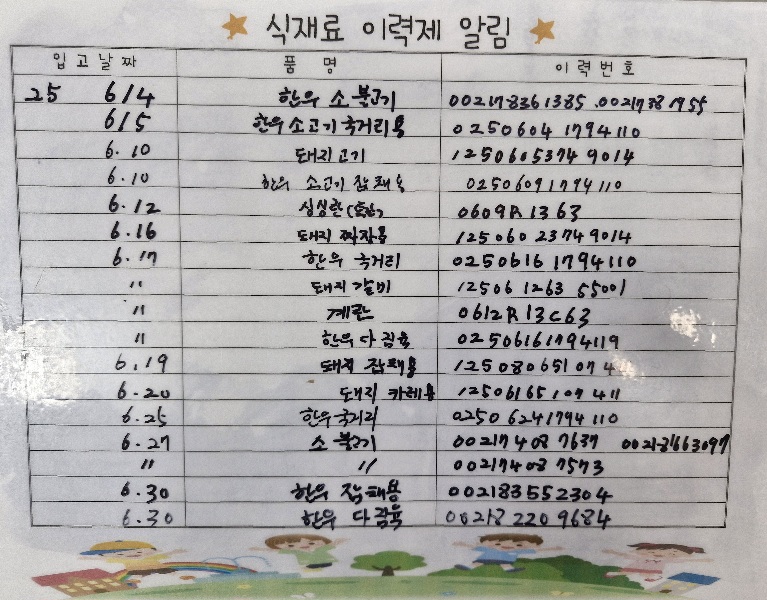 식재료 이력제 알림
입고날짜 품 명 이력번호
25 6/4 한우 소 불고기 002178361385 .002173819 55
6/5 한우 소고기 국거리용 0250604 1794110
6.10 돼지고기 12506053749014
6.10 한우 소고기 잡채용 02506091794110
6.12 0609R1363
6.16 돼지 짜장용 12506023749014
6.17 한우 국거리 0250616 1794110
" 돼지 갈비 12506 1263 55001
" 계란 0612R13C63
" 한우 다짐육 02506161794119
6.19 돼지 잡채용 125080651074
6.20 돼지 카레용 12506165107411
6.25 한우국거리 0250 6241794110
6.27 소 불고기 002174087637
" " 002174087573
6.30 한우 잡채용 002183552304
6.30 한우 다짐육 002182209684